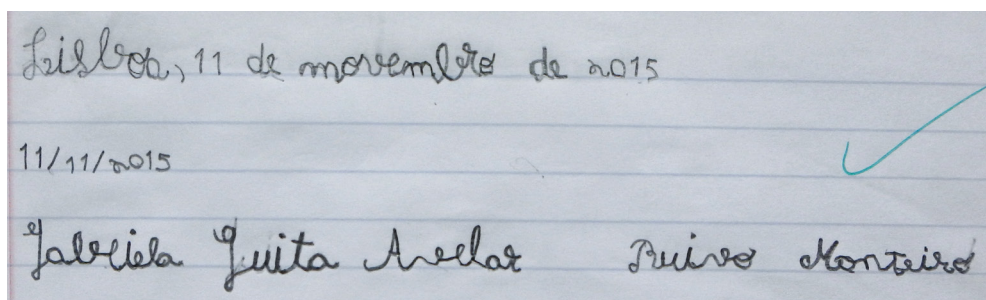 Lisboa, 11 de novembro de 2015
11/11/2015
Gabriela Guita Avelar Ruivo Monteiro